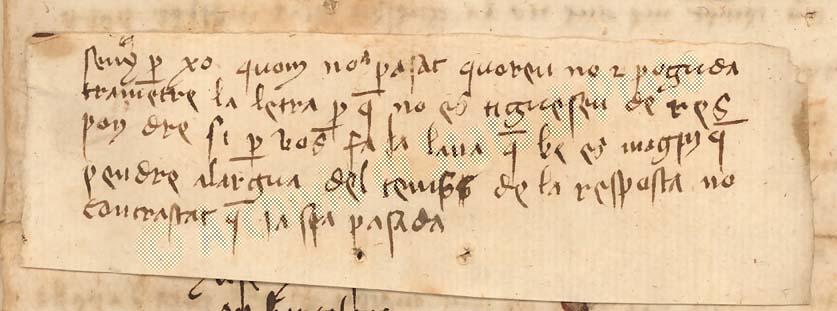 seny per xo quom no a pasat quoreu no2 poguda
trametre la letra per q̄ no es tiguesen de res
pendre si per vos fa la lana q̄ be es
pendre alargua del temps de la resposta no
contrastat q̄ ja sea pasada